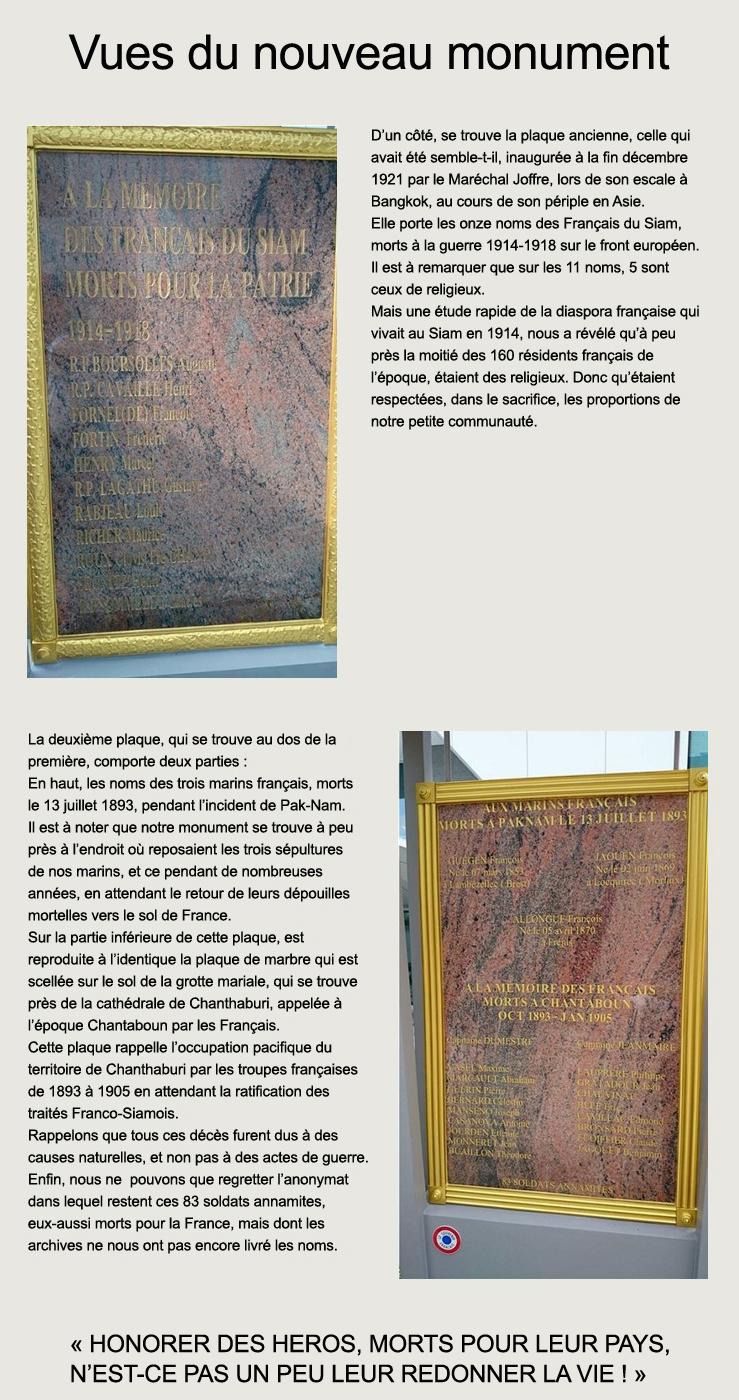 Vues du nouveau monument
A LA MEMOIRE
DES FRANCAIS DU SIAM
MORTS POUR LA PATRIE
1914-1918
R.P. BOURSOLLES Auguste
R.P. CAVAILLE Henri
FORNEL(DE) Francois
FORTIN Frederic
HENRY Marcel
R.P. LAGATHU Gustave
RABJEAU Louis
RICHER Maurice
D'un côté, se trouve la plaque ancienne, celle qui
avait été semble-t-il, inaugurée à la fin décembre
1921 par le Maréchal Joffre, lors de son escale à
Bangkok, au cours de son périple en Asie.
Elle porte les onze noms des Français du Siam,
morts à la guerre 1914-1918 sur le front européen.
Il est à remarquer que sur les 11 noms, 5 sont
ceux de religieux.
Mais une étude rapide de la diaspora française qui
vivait au Siam en 1914, nous a révélé qu'à peu
près la moitié des 160 résidents français de
l'époque, étaient des religieux. Donc qu'étaient
respectées, dans le sacrifice, les proportions de
notre petite communauté.
La deuxième plaque, qui se trouve au dos de la
première, comporte deux parties :
En haut, les noms des trois marins français, morts
le 13 juillet 1893, pendant l'incident de Pak-Nam.
Il est à noter que notre monument se trouve à peu
près à l'endroit où reposaient les trois sépultures
de nos marins, et ce pendant de nombreuses
années, en attendant le retour de leurs dépouilles
mortelles vers le sol de France.
Sur la partie inférieure de cette plaque, est
reproduite à l'identique la plaque de marbre qui est
scellée sur le sol de la grotte mariale, qui se trouve
près de la cathédrale de Chanthaburi, appelée à
l'époque Chantaboun par les Français.
Cette plaque rappelle l'occupation pacifique du
territoire de Chanthaburi par les troupes françaises
de 1893 à 1905 en attendant la ratification des
traités Franco-Siamois.
Rappelons que tous ces décès furent dus à des
causes naturelles, et non pas à des actes de guerre.
Enfin, nous ne pouvons que regretter l'anonymat
dans lequel restent ces 83 soldats annamites,
eux-aussi morts pour la France, mais dont les
archives ne nous ont pas encore livré les noms.
AUX MARINS FRANÇAIS
MORTS A PAKNAM LE 13 JUILLET 1893
GUEGEN François
Né le 07 mars 1853
à Lambezellec (Brest)
JAOUEN François
Né le 02 juin 1869
à Locquirec (Morlaix)
ALLONGUE François
Né le 05 avril 1870
à Fréjus
A LA MEMOIRE DES FRANCAIS
MORTS A CHANTABOUN
OCT 1893 - JAN 1905
Capitaine DUMESTRE
Capitaine JEANMAIRE
Maxime
MARGAULT Abraham
GUERIN Pierre
BERNARD Célestin
MANSENO Joseph
CASANOVA Antoine
JOURDEN Etienne
MONNERET Jean
BUAILLON Théodore
Philippe
Jean
Edmond
BRONSARD Pierre
Claude
Benjamin
83 SOLDATS ANNAMITES
« HONORER DES HEROS, MORTS POUR LEUR PAYS,
N'EST-CE PAS UN PEU LEUR REDONNER LA VIE ! »